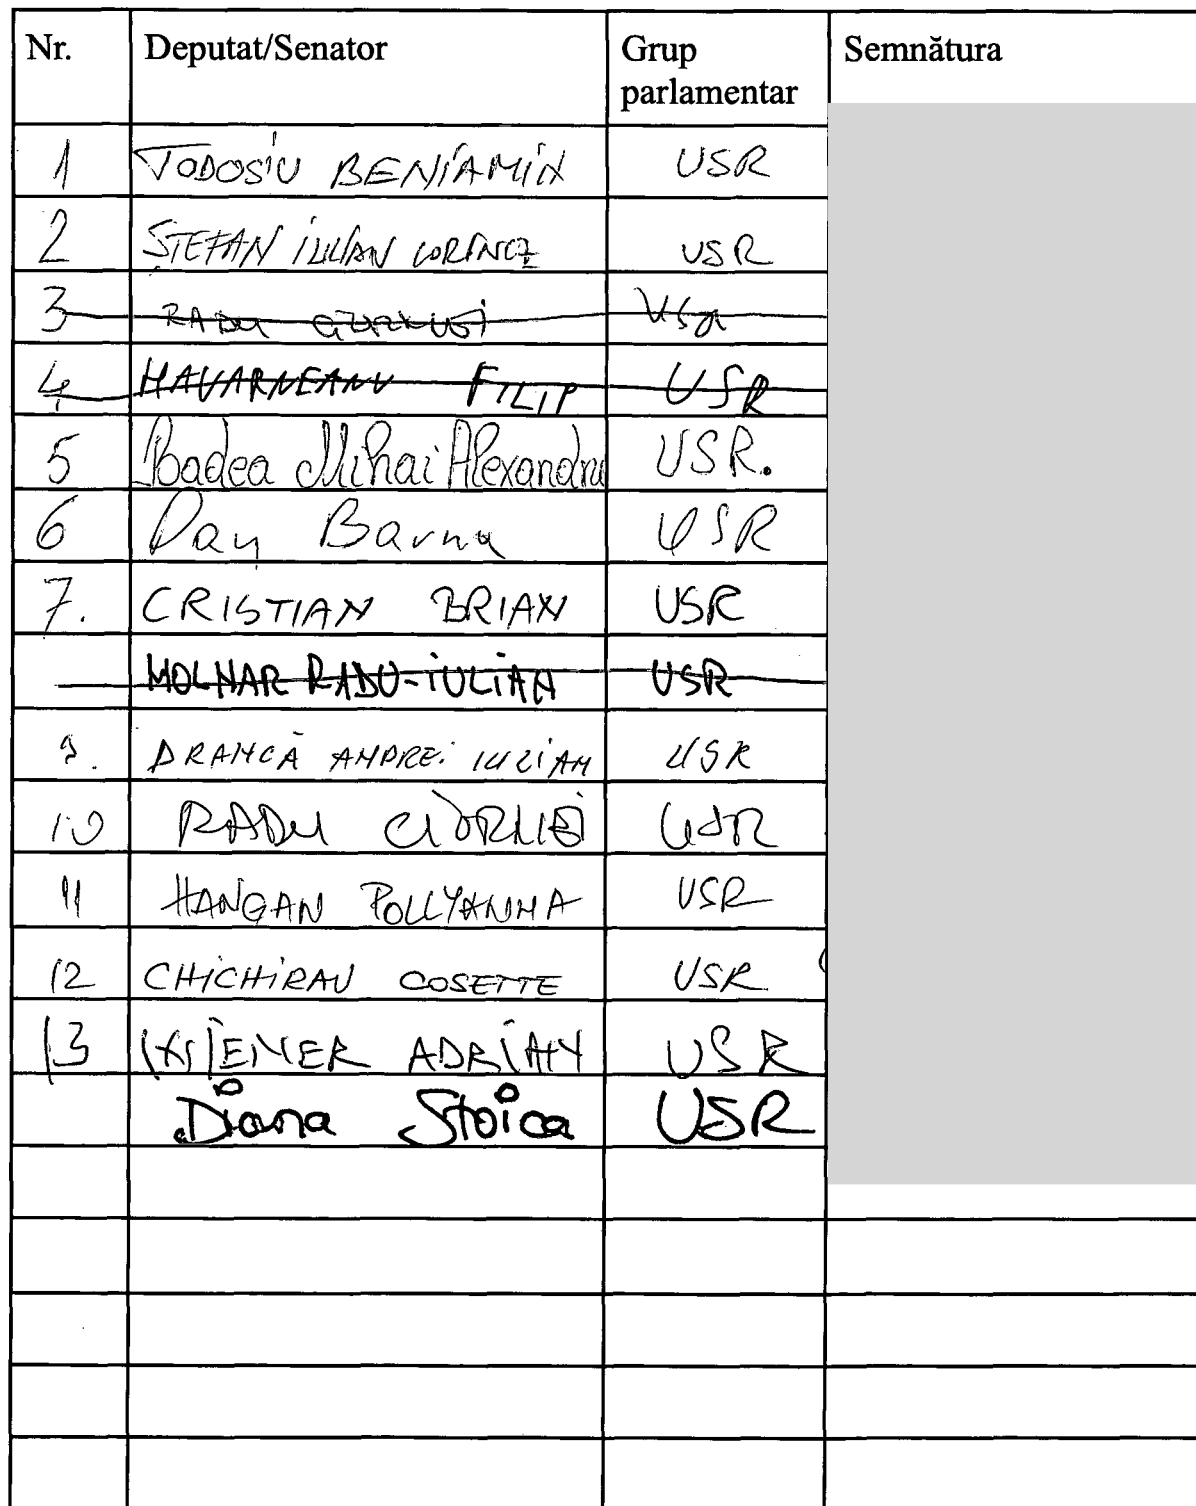 Nr. Deputat/Senator Grup parlamentar Semnătura
1 TODOSIU BENIAMIN USR
2 ȘTEFAN IULIAN LORINCZ USR
3 RADU USR
4 HAVARNEANU FILIP USR
5 Badea Mihai Alexandru USR.
6 Dan Barna USR
7. CRISTIAN BRIAN USR
MOLNAR RADU-IULIAN USR
9. DRANCĂ ANDREI IULIAN USR
10 RADU USR
11 HANGAN POLLYANNA USR
12 CHICHIRAU COSETTE USR
13 ADRIAN USR
Diana Stoica USR